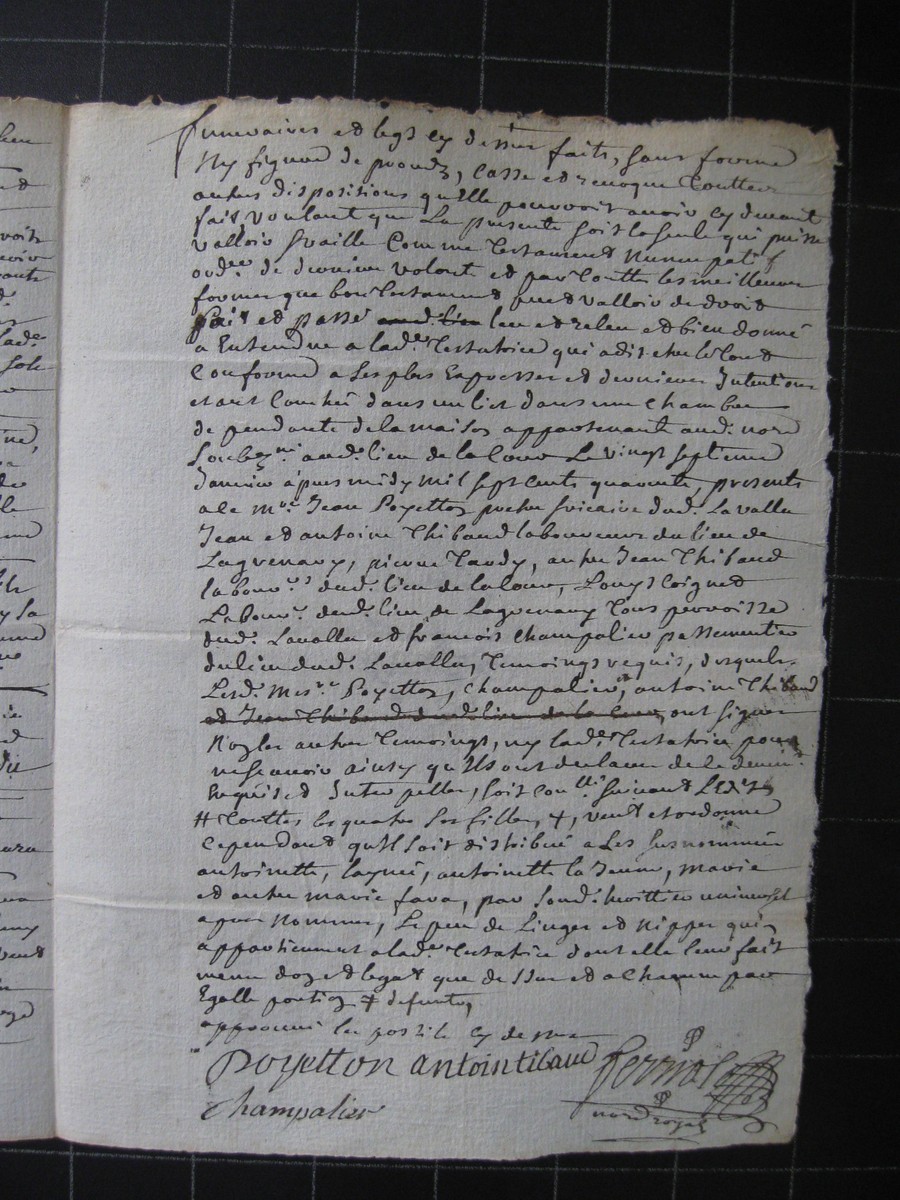 funeraires et legs cy dessus faits, sans forme
ny figure de procedz, casse et revoque touttes
autres dispositions qu'elle pouvoit avoir cy devant
fait voulant que la presente soit la seule qui puisse
valloir & vaille comme testament nuncupatif
ord.re de derniere volonté et par touttes les meilleures
formes que bon testament peut valloir de droit
fait et passé aud. lieu leu et releu et bien donné
a entendre a lad.e testatrice qui a dit etre le tout
conforme a ses plus expresses et dernieres intentions
etant couchée dans un lict dans une chambre
dependante de la maison appartenant aud. nore
soubz.né aud. lieu de la cour le vingt septieme
janvier apres midy mil sept cents quarante, presents
a ce m.re Jean Poyetton pretre & vicaire dud. Lavalla
Jean et antoine Thibaud laboureurs du lieu de
Laquenary, pierre Tardy, autre Jean Thibaud
labour.rs dud. lieu de la cour, Louys Coignet
Labour. dud. lieu de Laquenary tous parroisse
dud. Lavalla et francois Champalier passementier
du lieu dud. Lavalla, temoings requis, desquels
Lesd. mes.re Poyetton, Champalier, et antoine Thibaud
et Jean Thibaud dud. lieu de la cour, ont signé
Non les autres temoings, ny lad.e testatrice pour
ne scavoir ainsy qu'ils ont declaré de ce deum.
Enquis et interpellés, soit con.llé suivant L'Edit
# touttes les quatre ses filles, +, veut et ordonne
Cependant qu'il soit distribué a ses susnommées
antoinette, laynée, antoinette la jeune, marie
et autre marie fara, par sond. heritier universel
apres nommer, le peu de linges et nippes qui
appartiennent a lad.e testatrice dont elle leur fait
meme don et legat que dessus et a chacune par
Egalle portion + defunte,
approuvé les postile cy dessus
Poyetton antoin tibaud ferriol
Champalier nore royal